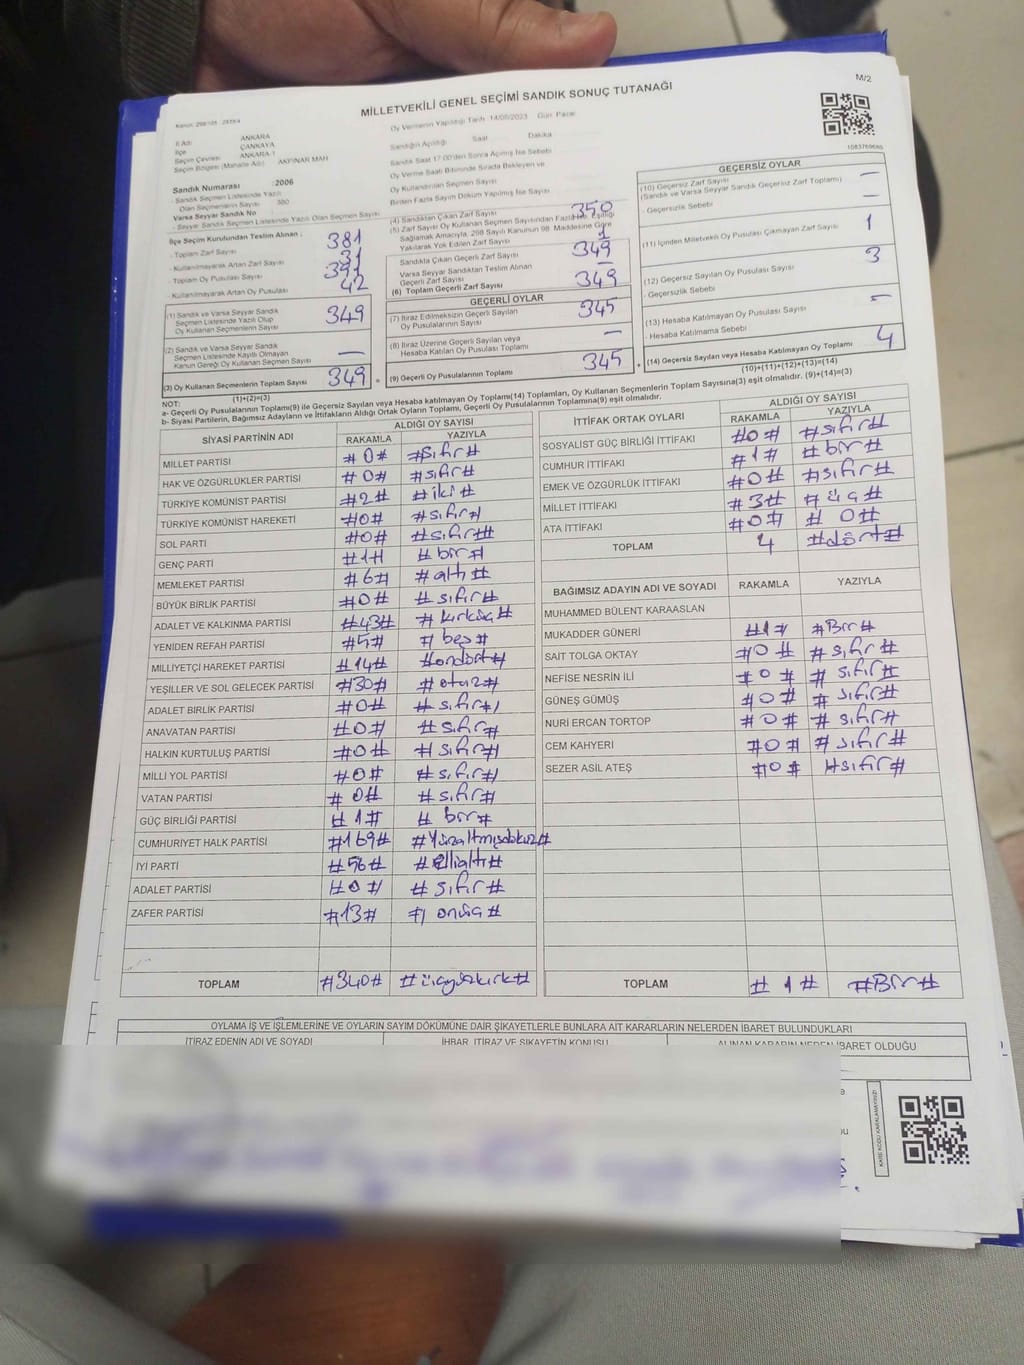 M/2
MİLLETVEKİLİ GENEL SEÇİMİ SANDIK SONUÇ TUTANAĞI
İl Adı ANKARA
İlçe ÇANKAYA
Seçim Çevresi ANKARA-1
Seçim Bölgesi (Mahalle Adı) AKPINAR MAH
Sandık Numarası :2006
Sandık Seçmen Listesinde Yazılı
Olan Seçmenlerin Sayısı 380
Varsa Seyyar Sandık No
- Seyyar Sandık Seçmen Listesinde Yazılı Olan Seçmen Sayısı
İlçe Seçim Kurulundan Teslim Alınan ;
- Toplam Zarf Sayısı 381
- Kullanılmayarak Artan Zarf Sayısı 31
- Toplam Oy Pusulası Sayısı 391
- Kullanılmayarak Artan Oy Pusulası 42
(1) Sandık ve Varsa Seyyar Sandık
Seçmen Listesinde Yazılı Olup
Oy Kullanan Seçmenlerin Sayısı 349
(2) Sandık ve Varsa Seyyar Sandık
Seçmen Listesinde Kayıtlı Olmayan
Kanun Gereği Oy Kullanan Seçmen Sayısı —
(3) Oy Kullanan Seçmenlerin Toplam Sayısı 349
(1)+(2)=(3)
Oy Vermenin Yapıldığı Tarih 14/05/2023 Gün Pazar
Sandığın Açıldığı Saat Dakika
Sandık Saat 17:00'den Sonra Açılmış İse Sebebi
Oy Verme Saati Bitiminde Sırada Bekleyen ve
Oy Kullandırılan Seçmen Sayısı
Birden Fazla Sayım Döküm Yapılmış İse Sayısı
(4) Sandıktan Çıkan Zarf Sayısı 350
(5) Zarf Sayısı Oy Kullanan Seçmen Sayısından Fazla İse, Eşitliği
Sağlamak Amacıyla, 298 Sayılı Kanunun 98. Maddesine Göre
Yakılarak Yok Edilen Zarf Sayısı 1
Sandıkta Çıkan Geçerli Zarf Sayısı 349
Varsa Seyyar Sandıktan Teslim Alınan
Geçerli Zarf Sayısı —
(6) Toplam Geçerli Zarf Sayısı 349
GEÇERLİ OYLAR
(7) İtiraz Edilmeksizin Geçerli Sayılan
Oy Pusulalarının Sayısı 345
(8) İtiraz Üzerine Geçerli Sayılan veya
Hesaba Katılan Oy Pusulası Toplamı —
(9) Geçerli Oy Pusulalarının Toplamı 345
1083769680
GEÇERSİZ OYLAR
(10) Geçersiz Zarf Sayısı —
(Sandık ve Varsa Seyyar Sandık Geçersiz Zarf Toplamı)
- Geçersizlik Sebebi —
(11) İçinden Milletvekili Oy Pusulası Çıkmayan Zarf Sayısı 1
(12) Geçersiz Sayılan Oy Pusulası Sayısı 3
- Geçersizlik Sebebi
(13) Hesaba Katılmayan Oy Pusulası Sayısı —
- Hesaba Katılmama Sebebi
(14) Geçersiz Sayılan veya Hesaba Katılmayan Oy Toplamı 4
(10)+(11)+(12)+(13)=(14)
NOT:
a- Geçerli Oy Pusulalarının Toplamı(9) ile Geçersiz Sayılan veya Hesaba katılmayan Oy Toplam(14) Toplamları, Oy Kullanan Seçmenlerin Toplam Sayısına(3) eşit olmalıdır. (9)+(14)=(3)
b- Siyasi Partilerin, Bağımsız Adayların ve İttifakların Aldığı Ortak Oyların Toplamı, Geçerli Oy Pusulalarının Toplamına(9) eşit olmalıdır.
SİYASİ PARTİNİN ADI ALDIĞI OY SAYISI
RAKAMLA YAZIYLA
MİLLET PARTİSİ #0# #sıfır#
HAK VE ÖZGÜRLÜKLER PARTİSİ #0# #sıfır#
TÜRKİYE KOMÜNİST PARTİSİ #2# #iki#
TÜRKİYE KOMÜNİST HAREKETİ #0# #sıfır#
SOL PARTİ #0# #sıfır#
GENÇ PARTİ #1# #bir#
MEMLEKET PARTİSİ #6# #altı#
BÜYÜK BİRLİK PARTİSİ #0# #sıfır#
ADALET VE KALKINMA PARTİSİ #43# #kırküç#
YENİDEN REFAH PARTİSİ #5# #beş#
MİLLİYETÇİ HAREKET PARTİSİ #14# #ondört#
YEŞİLLER VE SOL GELECEK PARTİSİ #30# #otuz#
ADALET BİRLİK PARTİSİ #0# #sıfır#
ANAVATAN PARTİSİ #0# #sıfır#
HALKIN KURTULUŞ PARTİSİ #0# #sıfır#
MİLLİ YOL PARTİSİ #0# #sıfır#
VATAN PARTİSİ #0# #sıfır#
GÜÇ BİRLİĞİ PARTİSİ #1# #bir#
CUMHURİYET HALK PARTİSİ #169# #Yüzaltmışdokuz#
İYİ PARTİ #56# #ElliAltı#
ADALET PARTİSİ #0# #sıfır#
ZAFER PARTİSİ #13# #onüç#
TOPLAM #340# #üçyüzkırk#
İTTİFAK ORTAK OYLARI ALDIĞI OY SAYISI
RAKAMLA YAZIYLA
SOSYALİST GÜÇ BİRLİĞİ İTTİFAKI #0# #sıfır#
CUMHUR İTTİFAKI #1# #bir#
EMEK VE ÖZGÜRLÜK İTTİFAKI #0# #sıfır#
MİLLET İTTİFAKI #3# #üç#
ATA İTTİFAKI #0# #0#
TOPLAM 4 #dört#
BAĞIMSIZ ADAYIN ADI VE SOYADI RAKAMLA YAZIYLA
MUHAMMED BÜLENT KARAASLAN
MUKADDER GÜNERİ #1# #Bir#
SAİT TOLGA OKTAY #0# #sıfır#
NEFİSE NESRİN İLİ #0# #sıfır#
GÜNEŞ GÜMÜŞ #0# #sıfır#
NURİ ERCAN TORTOP #0# #sıfır#
CEM KAHYERİ #0# #sıfır#
SEZER ASİL ATEŞ #0# #sıfır#
TOPLAM #1# #Bir#
OYLAMA İŞ VE İŞLEMLERİNE VE OYLARIN SAYIM DÖKÜMÜNE DAİR ŞİKAYETLERLE BUNLARA AİT KARARLARIN NELERDEN İBARET BULUNDUKLARI
İTİRAZ EDENİN ADI VE SOYADI İHBAR, İTİRAZ VE ŞİKAYETİN KONUSU ALINAN KARARIN NEDEN İBARET OLDUĞU
KARE KODU KARALAMAYINIZ!